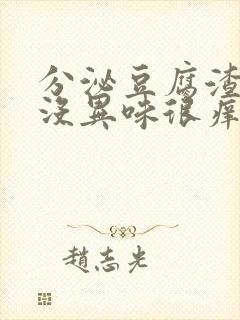 分泌豆腐渣
没異味很痒
趙志光